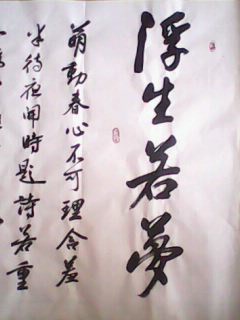 浮生若夢
萌動春心不可理含羞
半待夜開時題詩若重